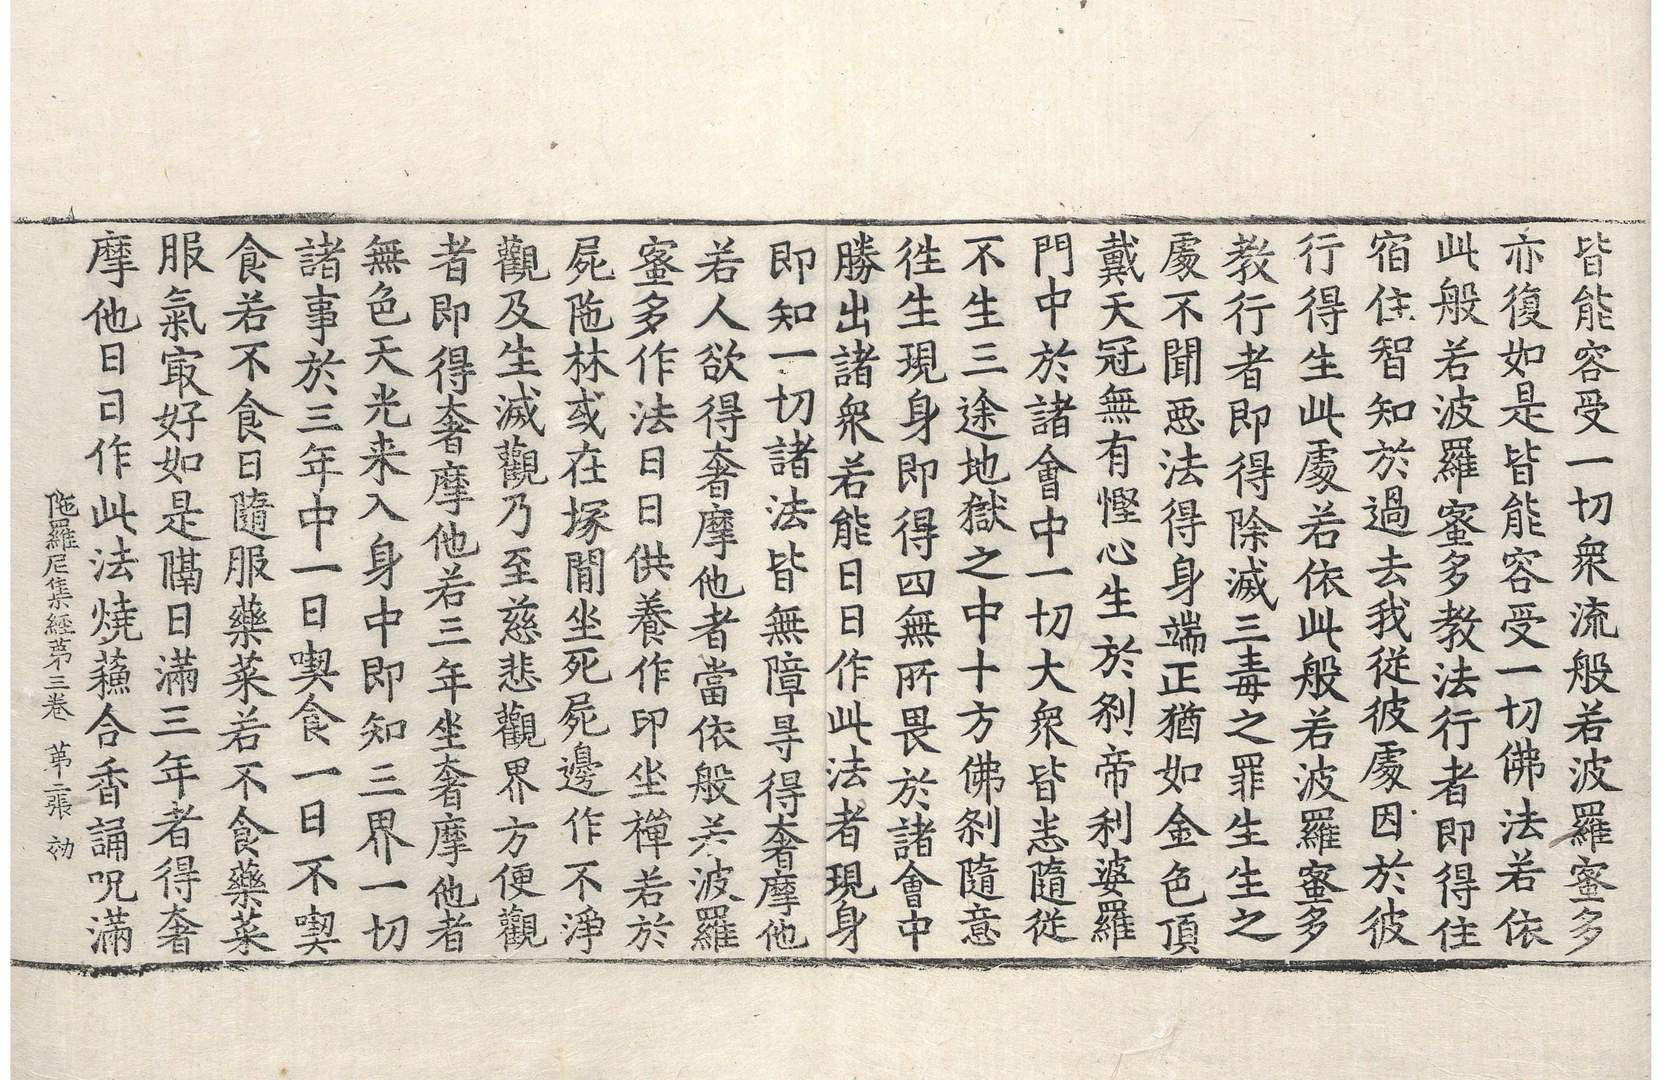 皆能容受一切衆流般若波羅蜜多
亦復如是皆能容受一切佛法若依
此般若波羅蜜多教法行者即得住
宿住智知於過去我從彼處因於彼
行得生此處若依此般若波羅蜜多
教行者即得除滅三毒之罪生生之
處不聞惡法得身端正猶如金色頂
戴天冠無有慳心生於刹帝利婆羅
門中於諸會中一切大衆皆悉隨從
不生三途地獄之中十方佛刹隨意
徃生現身即得四無所畏於諸會中
勝出諸衆若能日日作此法者現身
即知一切諸法皆無障㝵得奢摩他
若人欲得奢摩他者當依般若波羅
蜜多作法日日供養作印坐禪若於
屍陁林或在塚間坐死屍邊作不淨
觀及生滅觀乃至慈悲觀界方便觀
者即得奢摩他若三年坐奢摩他者
無色天光来入身中即知三界一切
諸事於三年中一日喫食一日不喫
食若不食日隨服藥菜若不食藥菜
服氣㝡好如是隔日滿三年者得奢
摩他日日作此法燒蘓合香誦呪滿
陁羅尼集經苐三卷　苐二張　効